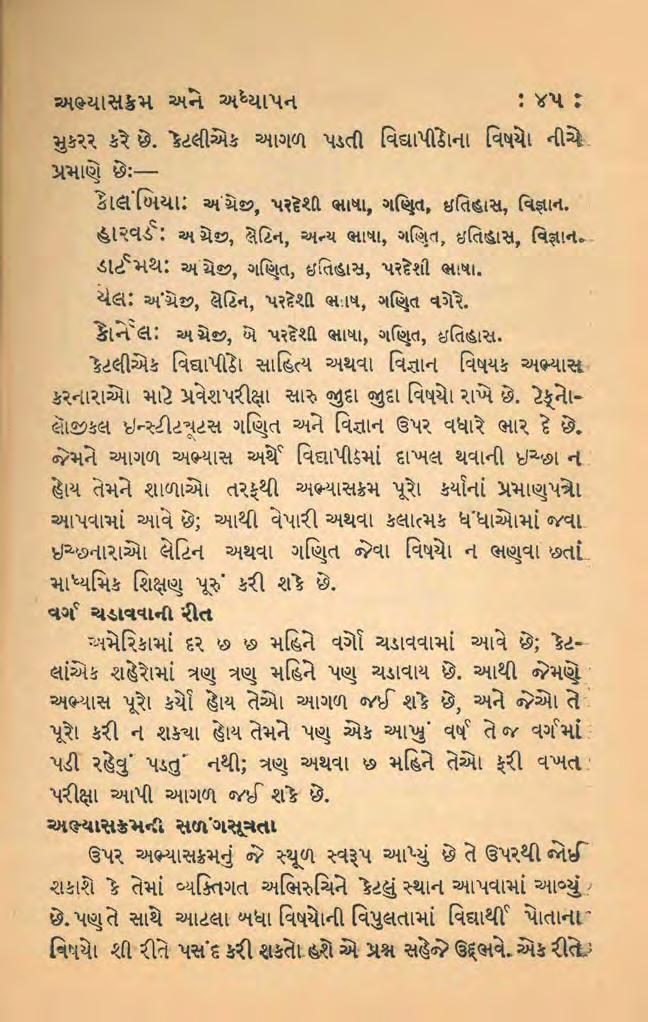 અભ્યાસક્રમ અને અધ્યાપન : ૪૫ :
મુકરર કરે છે. કેટલીએક આગળ પડતી વિદ્યાપીઠોના વિષયો નીચે
પ્રમાણે છેઃ—
કોલંબિયાઃ અંગ્રેજી, પરદેશી ભાષા, ગણિત, ઇતિહાસ, વિજ્ઞાન.
હારવર્ડઃ અંગ્રેજી, લેટિન, અન્ય ભાષા, ગણિત, ઇતિહાસ, વિજ્ઞાન.
ડાર્ટમથઃ અંગ્રેજી, ગણિત, ઇતિહાસ, પરદેશી ભાષા.
યેલઃ અંગ્રેજી, લેટિન, પરદેશી ભાષ, ગણિત વગેરે.
કોર્નેલઃ અંગ્રેજી, બે પરદેશી ભાષા, ગણિત, ઇતિહાસ.
કેટલીએક વિદ્યાપીઠો સાહિત્ય અથવા વિજ્ઞાન વિષયક અભ્યાસ
કરનારાઓ માટે પ્રવેશપરીક્ષા સારુ જુદા જુદા વિષયો રાખે છે. ટેક્નો-
લૉજીકલ ઇન્સ્ટીટ્યૂટસ ગણિત અને વિજ્ઞાન ઉપર વધારે ભાર દે છે.
જેમને આગળ અભ્યાસ અર્થે વિદ્યાપીઠમાં દાખલ થવાની ઇચ્છા ન
હોય તેમને શાળાઓ તરફથી અભ્યાસક્રમ પૂરો કર્યાનાં પ્રમાણપત્રો
આપવામાં આવે છે; આથી વેપારી અથવા કલાત્મક ધંધાઓમાં જવા
ઇચ્છનારાઓ લેટિન અથવા ગણિત જેવા વિષયો ન ભણવા છતાં
માધ્યમિક શિક્ષણ પૂરું કરી શકે છે.
વર્ગ ચડાવવાની રીત
અમેરિકામાં દર છ છ મહિને વર્ગો ચડાવવામાં આવે છે; કેટ-
લાંએક શહેરોમાં ત્રણ ત્રણ મહિને પણ ચડાવાય છે. આથી જેમણે
અભ્યાસ પૂરો કર્યો હોય તેઓ આગળ જઈ શકે છે, અને જેઓ તે
પૂરો કરી ન શક્યા હોય તેમને પણ એક આખું વર્ષ તે જ વર્ગમાં
પડી રહેવું પડતું નથી; ત્રણ અથવા છ મહિને તેઓ ફરી વખત
પરીક્ષા આપી આગળ જઈ શકે છે.
અભ્યાસક્રમની સળંગસૂત્રતા
ઉપર અભ્યાસક્રમનું જે સ્થૂળ સ્વરૂપ આપ્યું છે તે ઉપરથી જોઈ
શકાશે કે તેમાં વ્યક્તિગત અભિરુચિને કેટલું સ્થાન આપવામાં આવ્યું
છે. પણ તે સાથે આટલા બધા વિષયોની વિપુલતામાં વિદ્યાર્થી પોતાના
વિષયો શી રીતે પસંદ કરી શકતો હશે એ પ્રશ્ન સહેજે ઉદ્દભવે. એક રીતે